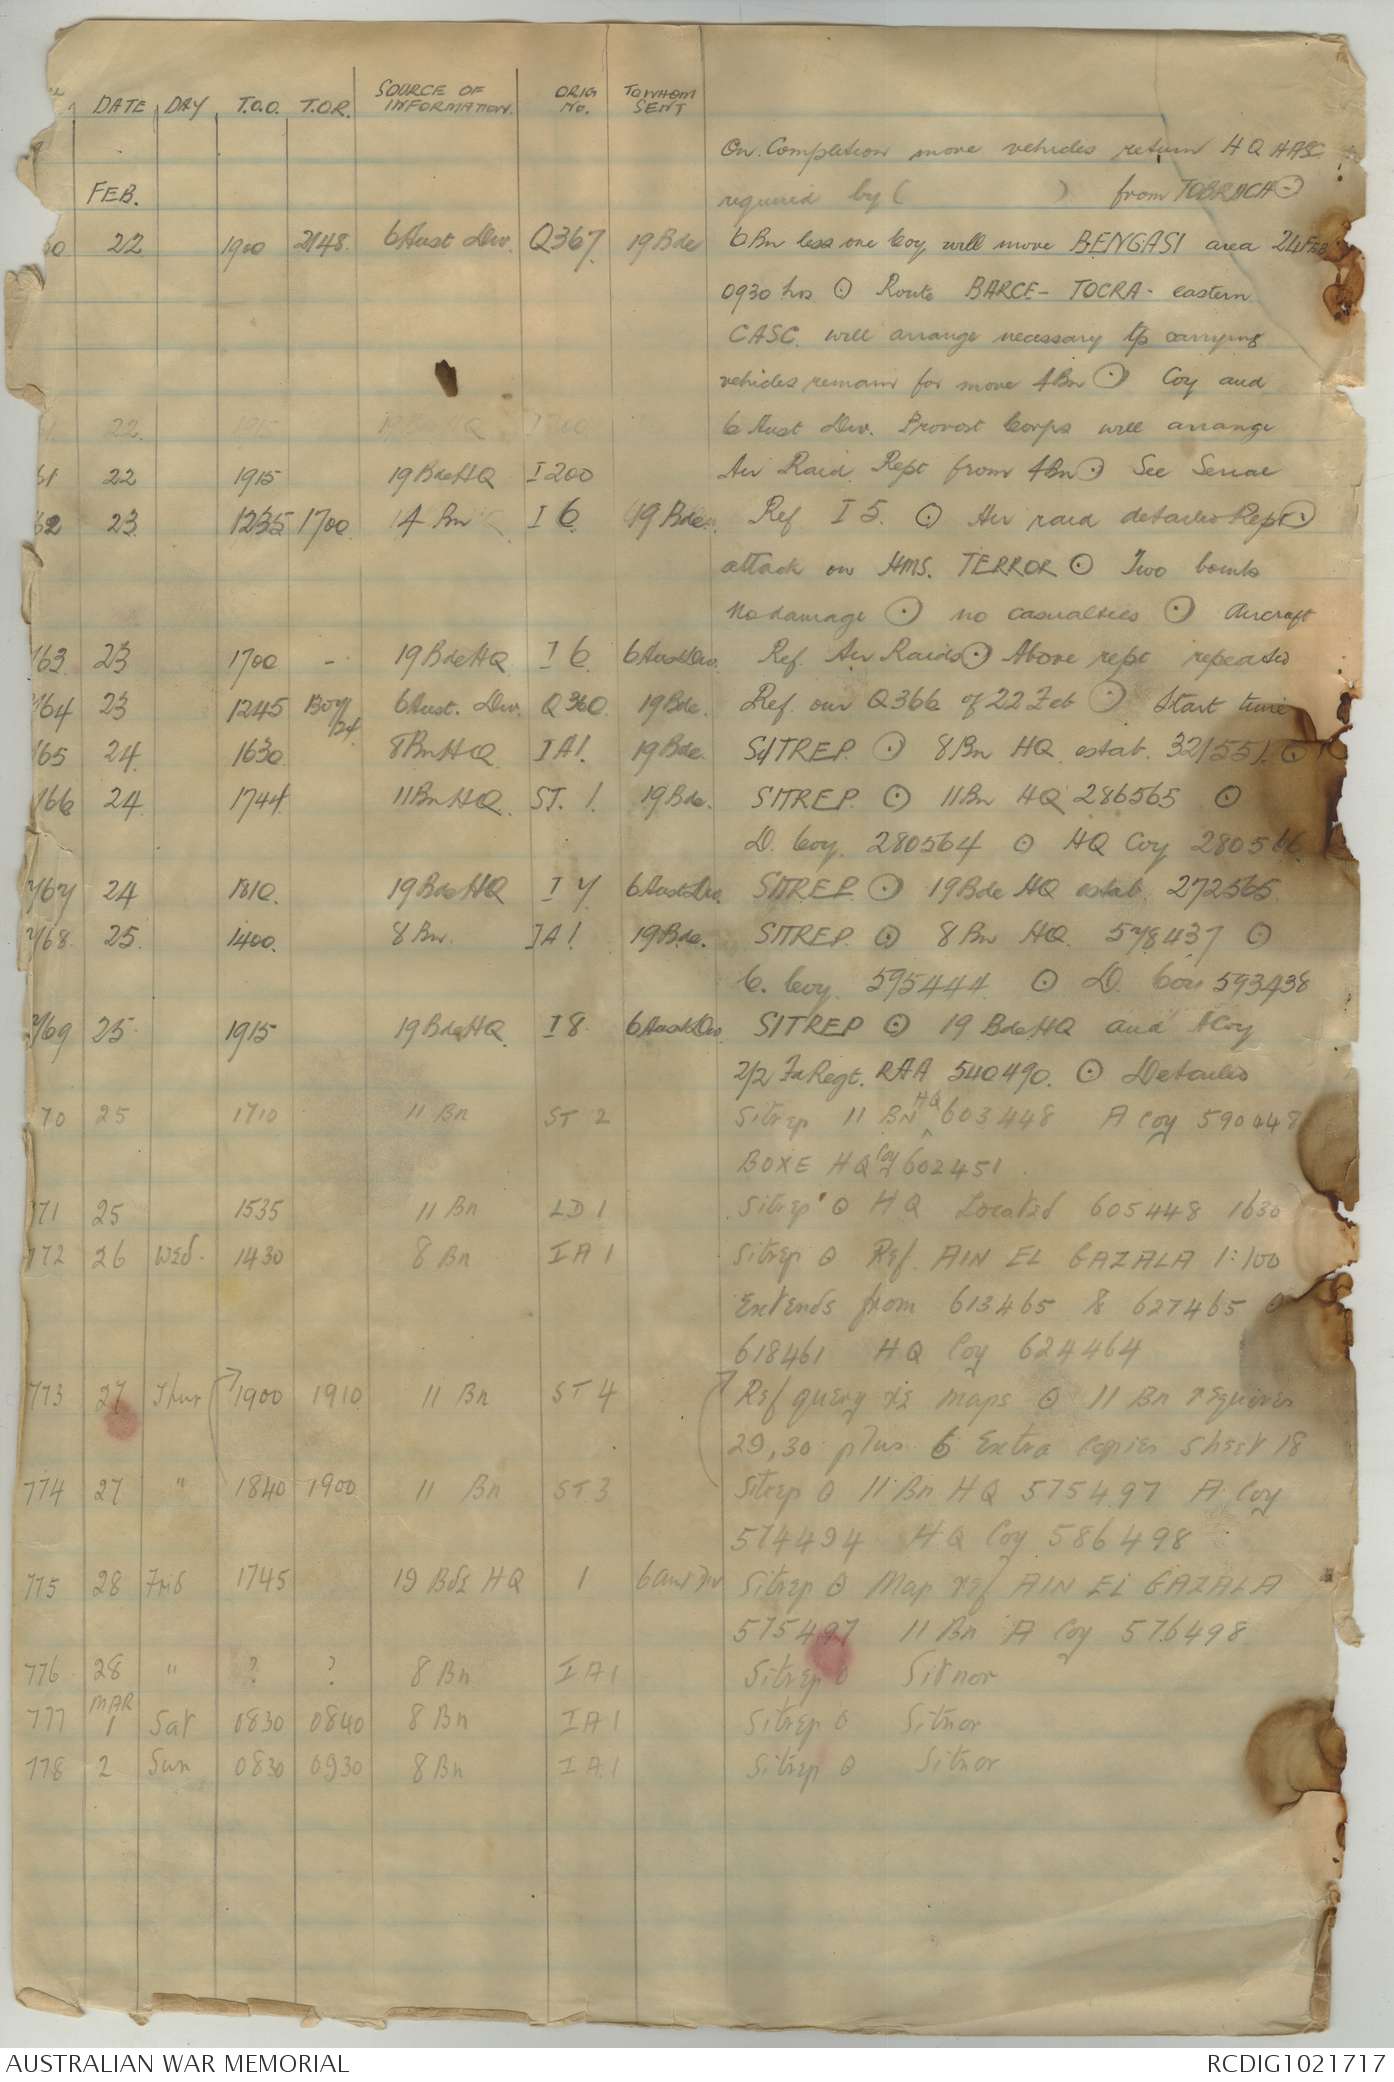 DATE DAY T.O.O. T.O.R. SOURCE OF INFORMATION. ORIG No. TO WHOM SENT
On Completion more vehicles return HQ AASC
FEB. required by ( ) from TOBRUCH ⊙
60 22 1900 2148 6 Aust Div. Q367 19 Bde 6 Bn less one Coy will move BENGASI area 24 FEB
0930 hrs ⊙ Route BARCE - TOCRA - eastern
CASC. will arrange necessary tp carrying
vehicles remain for move 4 Bn ⊙ Coy and
22 1915 19 Bde HQ I 200 6 Aust Div. Provost Corps will arrange
61 22 1915 19 Bde HQ I 200 Air Raid Rept from 4 Bn ⊙ See Serial
62 23 1235 1700 4 Bn I 6 19 Bde Ref I 5. ⊙ Air raid detailed Rept ⊙
attack on HMS. TERROR ⊙ Two bombs
No damage ⊙ no casualties ⊙ Aircraft
763 23 1700 - 19 Bde HQ I 6 6 Aust Div. Ref. Air Raids ⊙ Above rept repeated
764 23 1245 6 Aust. Div. Q 360 19 Bde. Ref. our Q366 of 22 Feb ⊙ Start time
765 24 1630 8 Bn HQ IA1. 19 Bde. SITREP ⊙ 8 Bn HQ estab. 321551. ⊙
766 24 1744 11 Bn HQ ST. 1. 19 Bde. SITREP. ⊙ 11 Bn HQ 286565 ⊙
D. Coy. 280564 ⊙ HQ Coy 280566
767 24 1810. 19 Bde HQ I 7 6 Aust Div. SITREP. ⊙ 19 Bde HQ estab. 272565
768 25 1400. 8 Bn. IA1. 19 Bde. SITREP. ⊙ 8 Bn HQ. 578437 ⊙
C. Coy. 595444. ⊙ D. Coy 593438
769 25 1915 19 Bde HQ I 8 6 Aust Div. SITREP ⊙ 19 Bde HQ and A Coy
2/2 Fd Regt. RAA 540490. ⊙ Detailed
70 25 1710 11 Bn ST 2 Sitrep 11 BN HQ 603448 A Coy 590448
BOXE HQ Coy 602451
771 25 1535 11 Bn LD 1 Sitrep ⊙ HQ Located 605448 1630
772 26 Wed. 1430 8 Bn IA 1 Sitrep ⊙ Ref. AIN EL GAZALA 1:100
Extends from 613465 & 627465 ⊙
618461 HQ Coy 624464
773 27 Thur 1900 1910 11 Bn ST 4 Ref query re maps ⊙ 11 Bn requires
29, 30 plus 6 Extra Copies Sheet 18
774 27 " 1840 1900 11 Bn ST 3 Sitrep ⊙ 11 Bn HQ 575497 A Coy
574494 HQ Coy 586498
775 28 Frid 1745 19 Bde HQ 1 6 Aust Div Sitrep ⊙ Map ref AIN EL GAZALA
575497 11 Bn A Coy 576498
776 28 " ? ? 8 Bn IA 1 Sitrep ⊙ Sitnor
MAR
777 1 Sat 0830 0840 8 Bn IA 1 Sitrep ⊙ Sitnor
778 2 Sun 0830 0930 8 Bn IA 1 Sitrep ⊙ Sitnor
AUSTRALIAN WAR MEMORIAL RCDIG1021717